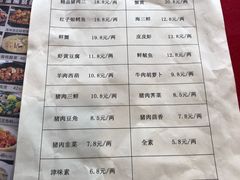 精品猪肉三 18.8元/两 蟹黄 20.8元/两
虾子鲅鱼 18.8元/两 海三鲜 12.8元/两
鲜蟹 19.8元/两 皮皮虾 13.8元/两
虾黄豆腐 11.8元/两 鲜鱿鱼 12.8元/两
羊肉西葫 10.8元/两 牛肉胡萝卜 9.8元/两
猪肉三鲜 10.8元/两 猪肉荠菜 8.8元/两
猪肉豆角 8.5元/两 猪肉茴香 7.8元/两
猪肉韭菜 7.8元/两 全素 5.8元/两
津味素 6.8元/两